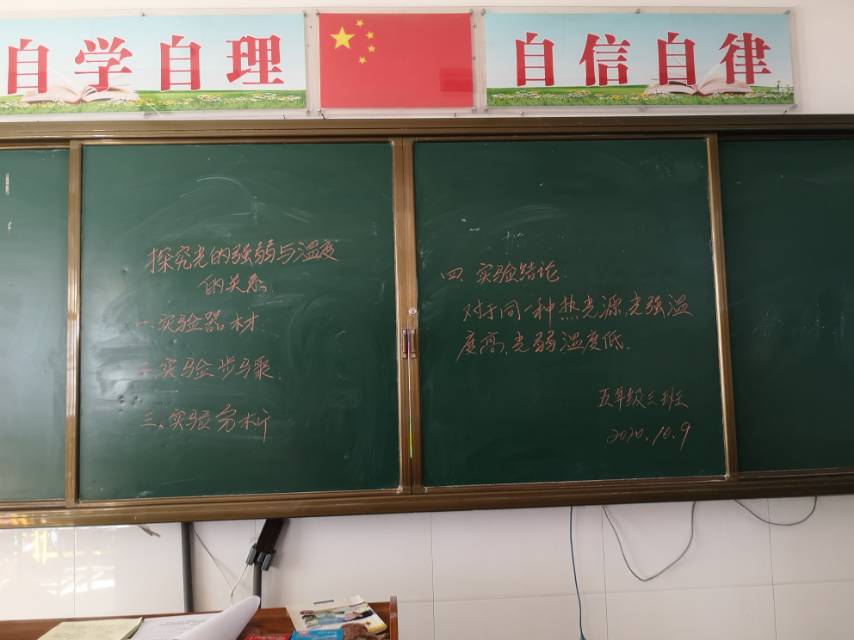 自学自理
自信自律
探究光的强弱与温度
的关系
一.实验器材
二.实验步骤.
三.实验分析
四.实验结论.
对于同一种热光源,光强温
度高,光弱温度低.
五年级三班
2020.10.9